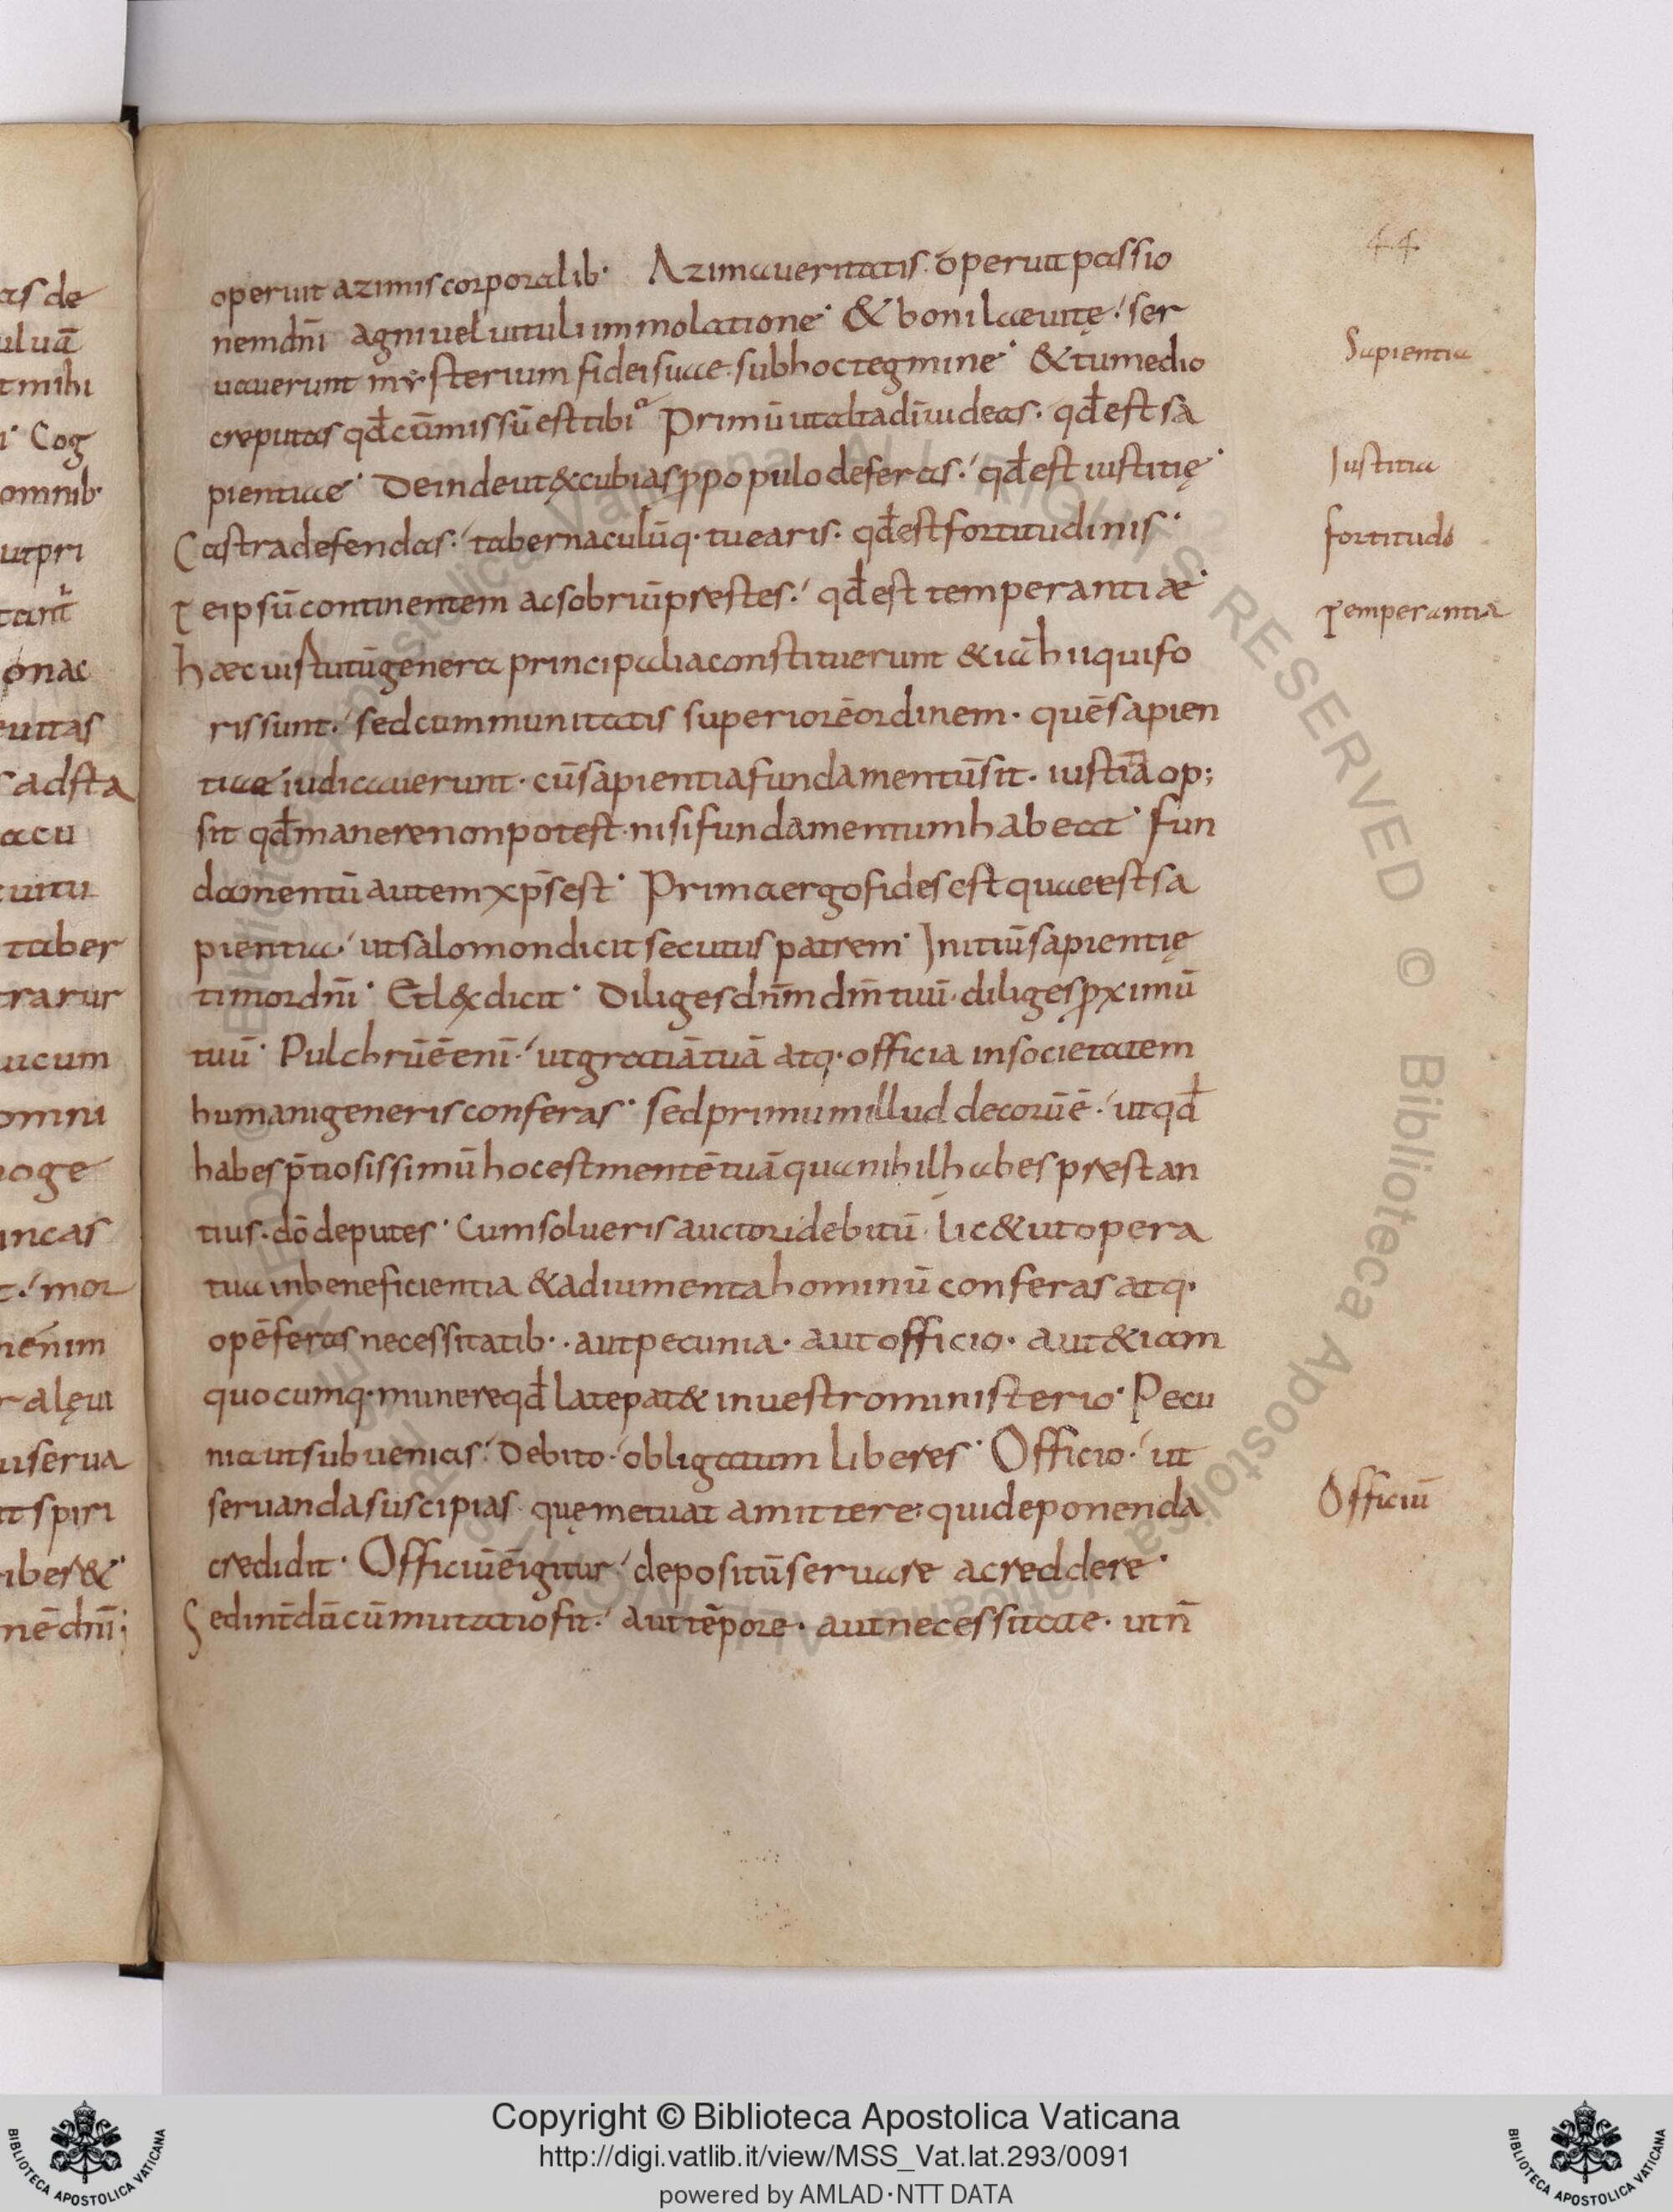 44
operuit azimis corporalib· Azima ueritatis. operuit passio
nem dn̄i agni uel uituli immolatione· & boni laeuitę. ser
uauerunt mysterium fidei suae. subhoc tegmine· & tu medio
creputas qd̄ cūmissū est tibi Primū ut alta diuideas. qd̄ est sa
pientiae· Deinde ut excubias ꝓ populo deferas. qd̄ est iustitię·
Castra defendas. tabernaculūq· tuearis. qd̄ est fortitudinis·
Te ipsū continentem ac sobriū prestes. qd̄ est temperantiae·
Haec uirtutū genera principalia constituerunt & iā hii qui fo
ris sunt. sed communitatis superiorē ordinem. quē sapien
tiae iudicauerunt. cū sapientia fundamentū sit. iustitia op;
sit qd̄ manere non potest. nisi fundamentum habeat· fun
damentū autem xp̄s est· Prima ergo fides est quae est sa
pientia. ut salomon dicit secutus patrem· Initiū sapientię
timor dn̄i· Et lex dicit· Diliges dn̄m dm̄ tuū. diliges ꝓximū
tuū· Pulchrū ē enī. ut gratiā tuā atq· officia in societatem
humani generis conferas· sed primum illud decorū ē. ut qd̄
habes p̄tiosissimū hoc est mentē tuā qua nihil habes prestan
tius. dō deputes· Cum solueris auctori debitū. lic& ut opera
tua in beneficientia & adiumenta hominū conferas atq·
opē feras necessitatib·. aut pecunia. aut officio. aut &iam
quocumq· munere qd̄ late pat& in uestro ministerio· Pecu
nia ut subuenias. Debito. obligatum liberes· Officio. ut
seruanda suscipias. quę metuat amittere. qui deponenda
credidit· Officiū ē igitur. depositū seruare ac reddere·
Sed int̄dū cūmutatio fit. aut tēpore. aut necessitate. ut n̄
Sapientia
Iustitia
fortitudo
Temperantia
Officiū
as de
t mihi
Cog
omnib·
ut pri
onac
adsta
uitu
taber
trarur
ucum
omni
oge
incas
mor
userua
t spiri
iber&·
nē dn̄i;
Copyright © Biblioteca Apostolica Vaticana
http://digi.vatlib.it/view/MSS_Vat.lat.293/0091
powered by AMLAD·NTT DATA
BIBLIOTECA APOSTOLICA VATICANA
BIBLIOTECA APOSTOLICA VATICANA